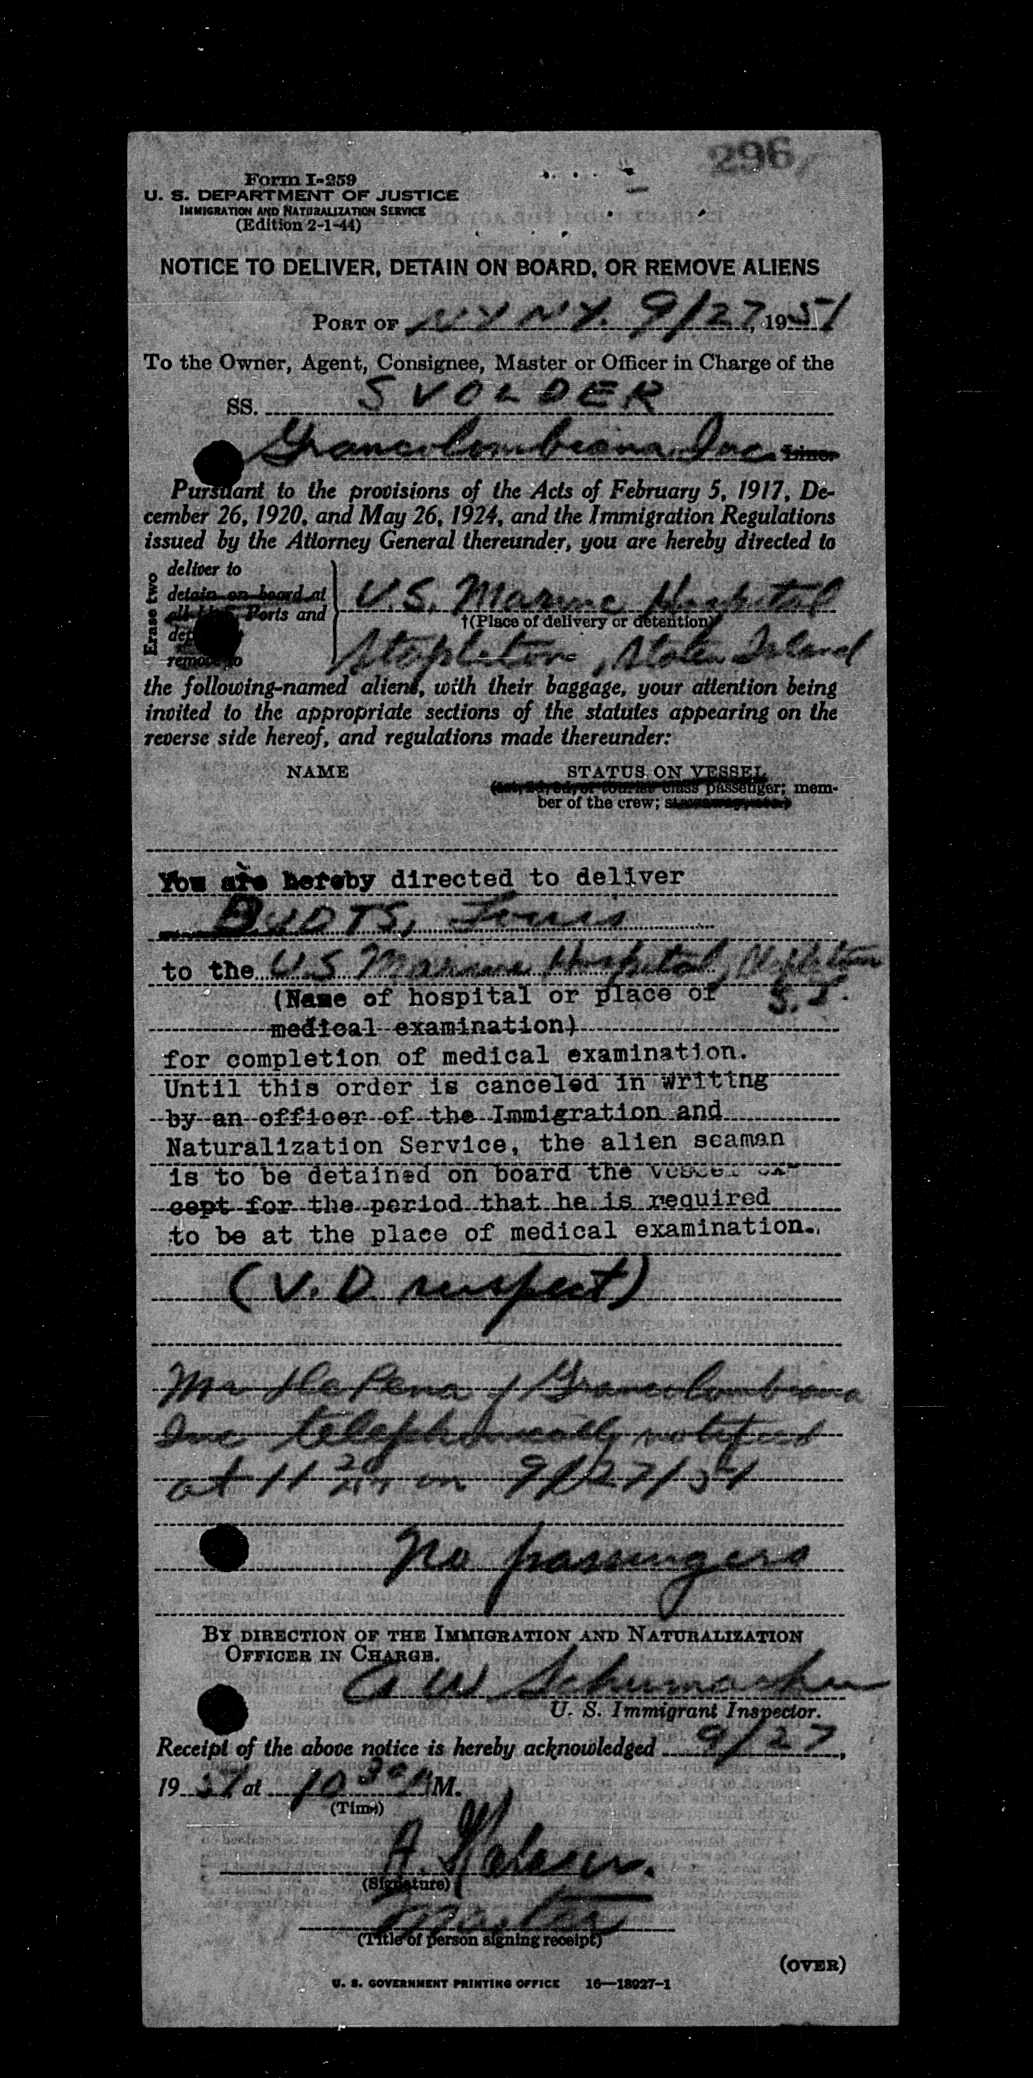 296
Form I-259
U. S. DEPARTMENT OF JUSTICE
IMMIGRATION AND NATURALIZATION SERVICE
(Edition 2-1-44)
NOTICE TO DELIVER, DETAIN ON BOARD, OR REMOVE ALIENS
PORT OF NY NY. 9/27, 1951
To the Owner, Agent, Consignee, Master or Officer in Charge of the
SS. SVOLDER
Grancolombiana Inc. Line.
Pursuant to the provisions of the Acts of February 5, 1917, De-
cember 26, 1920, and May 26, 1924, and the Immigration Regulations
issued by the Attorney General thereunder, you are hereby directed to
Erase two
deliver to
detain on board at
Ports and
remove to
U.S. Marine Hospital
†(Place of delivery or detention)
Stapleton, Staten Island
the following-named aliens, with their baggage, your attention being
invited to the appropriate sections of the statutes appearing on the
reverse side hereof, and regulations made thereunder:
NAME STATUS ON VESSEL
class passenger; mem-
ber of the crew;
You are hereby directed to deliver
BUDTS, Louis
to the U.S Marine Hospital, Stapleton
S.I.
(Name of hospital or place of
medical examination)
for completion of medical examination.
Until this order is canceled in writing
by an officer of the Immigration and
Naturalization Service, the alien seaman
is to be detained on board the vessel ex-
cept for the period that he is required
to be at the place of medical examination.
(V. D. suspect)
Mr DeLaPena of Grancolombiana
Inc telephonically notified
at 11 20 on 9/27/51
No passengers
BY DIRECTION OF THE IMMIGRATION AND NATURALIZATION
OFFICER IN CHARGE.
A W Schumacher
U. S. Immigrant Inspector.
Receipt of the above notice is hereby acknowledged 9/27,
1951 at 10 30 A M.
(Time)
A.
(Signature)
Master
(Title of person signing receipt)
(OVER)
U. S. GOVERNMENT PRINTING OFFICE 16—18927-1